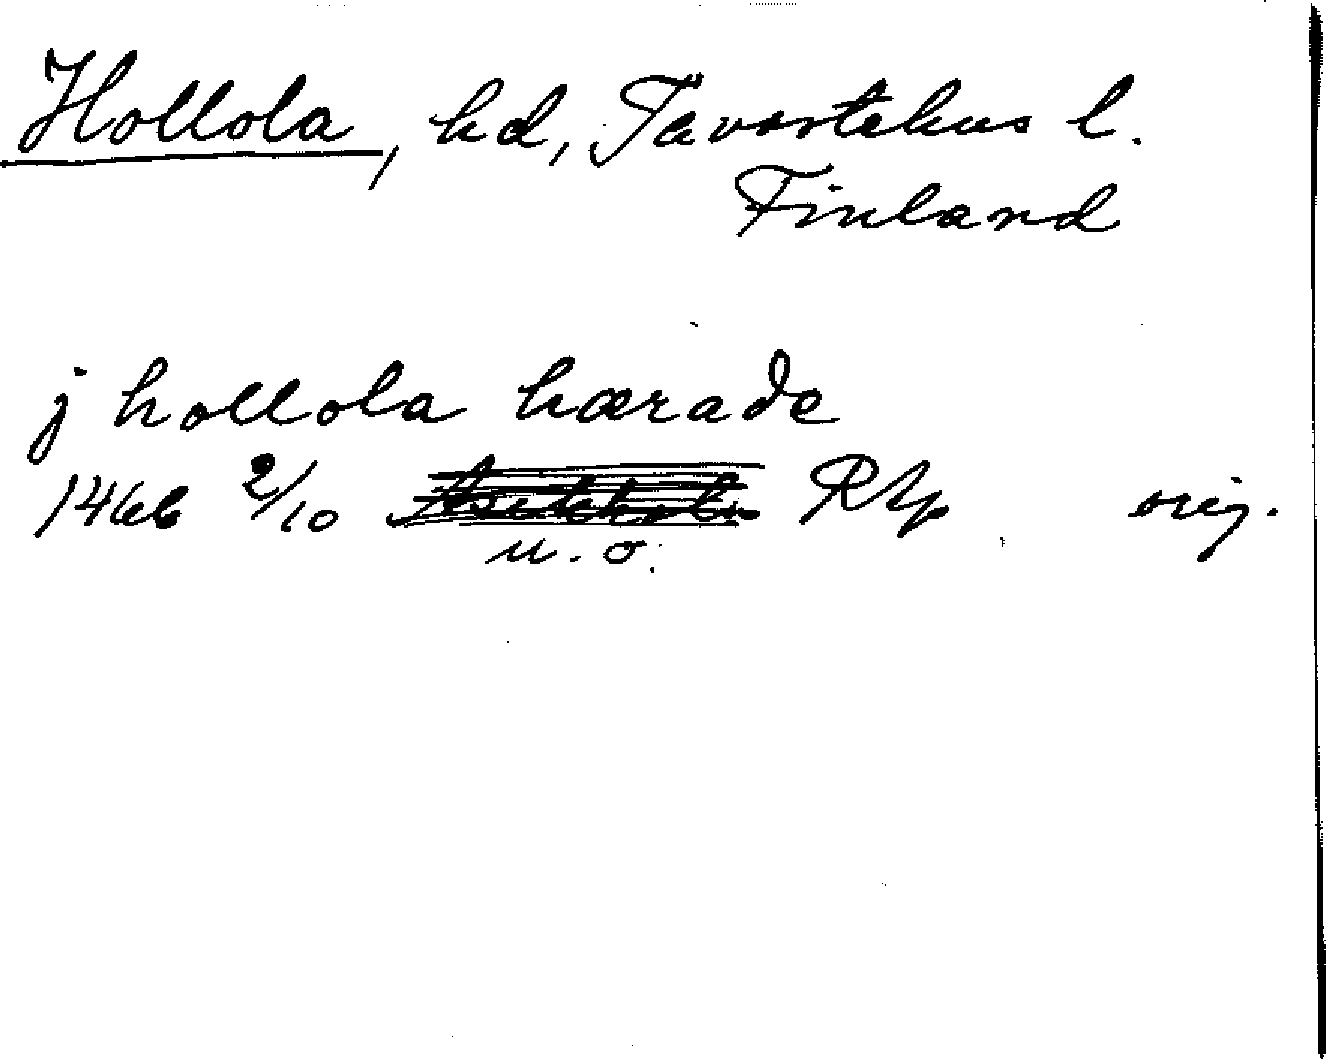 Hollola, hd, Tavastehus l.
Finland
j hollola hærade
1466 2/10 RAp orig.
u. o.